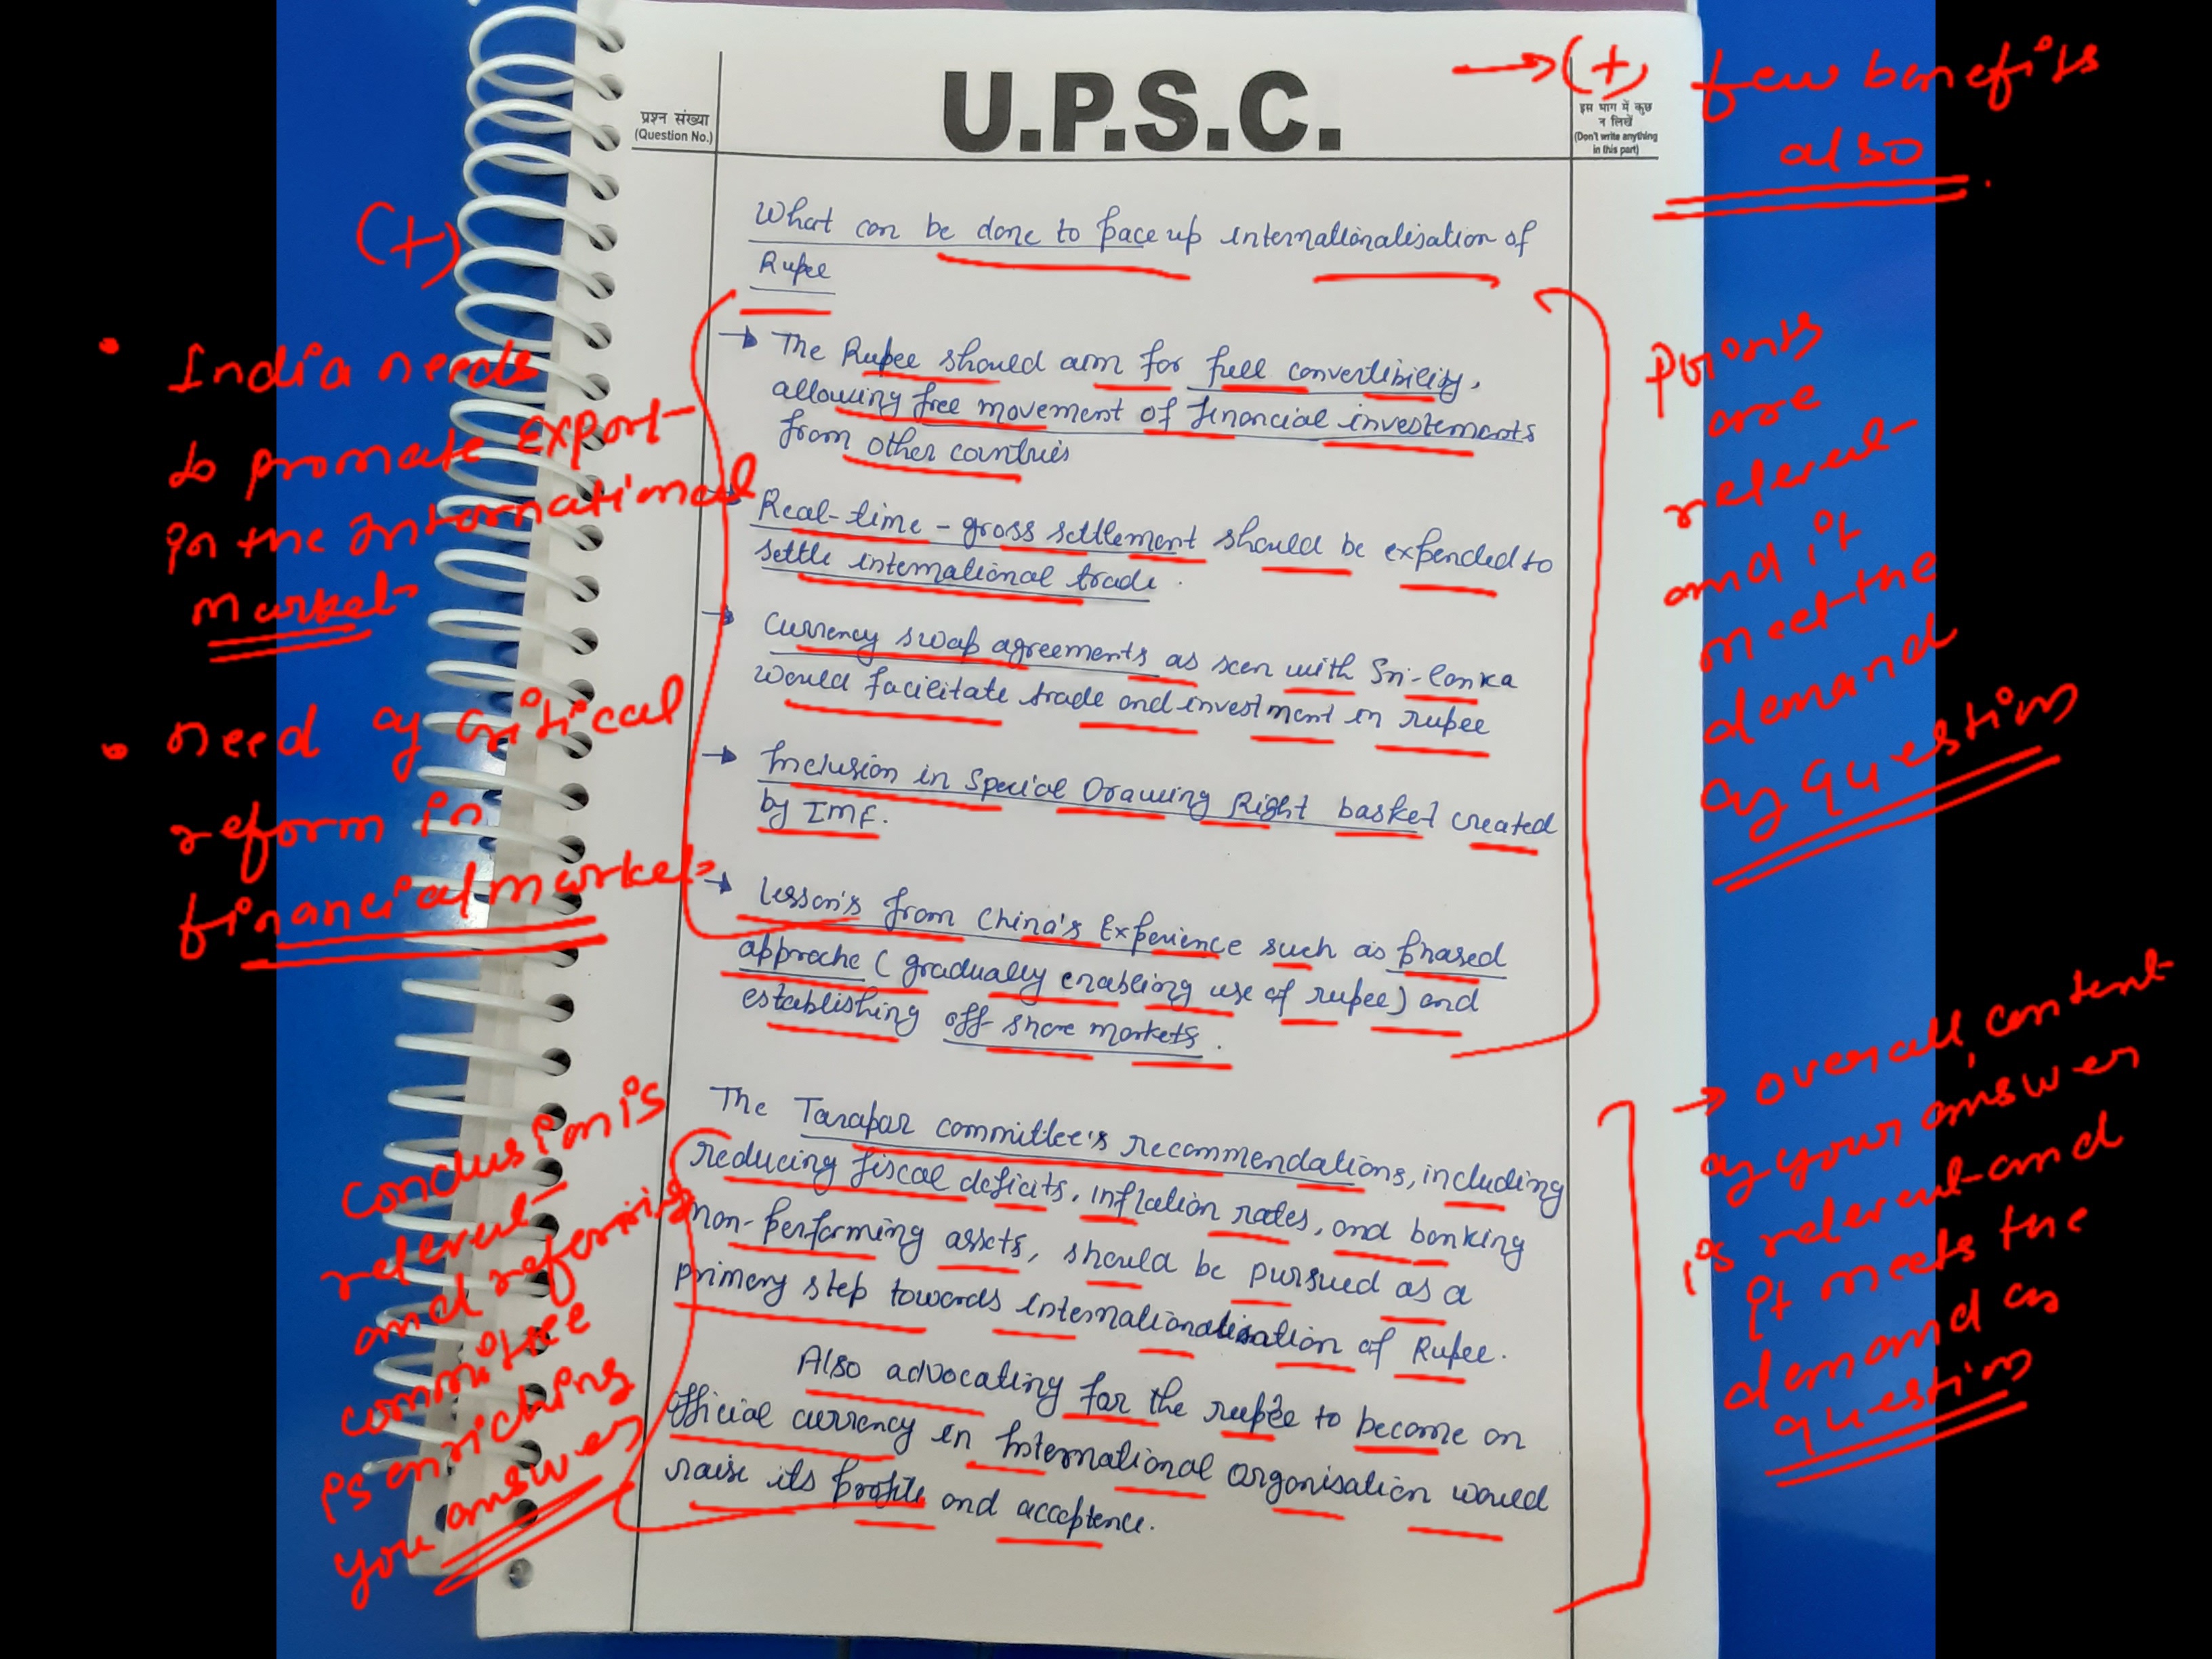 U.P.S.C.
प्रश्न संख्या
(Question No.)
इस भाग में कुछ
न लिखें
(Don't write anything
in this part)
→ (+) few benefits
also
What can be done to pace up internationalisation of
Rupee
→ The Rupee should aim for full convertibility,
allowing free movement of financial investements
from other contries
→ Real-time-gross settlement should be expended to
settle international trade.
→ Currency swap agreements as seen with Sri-lanka
would facilitate trade and investment in rupee
→ Inclusion in Special Drawing Right basket created
by IMF.
→ Lesson's from China's Experience such as phased
approche (gradually enabling use of rupee) and
establishing off-shore markets.
The Tarapar committee's recommendations, including
reducing fiscal deficits, inflation rates, and banking
non-performing assets, should be pursued as a
primary step towards internationalisation of Rupee.
Also advocating for the rupee to become an
official currency in International organisation would
raise its profile and acceptence.
(+)
• India needs
to promate export
in the International
market
• need of critical
reform in
financial market
conclusion is
relevent
and referring
committee
is enriching
you answer
Points
are
relevent
and it
meet the
demand
of question
→ overall, content
of your answer
is relevent and
it meets the
demand of
question